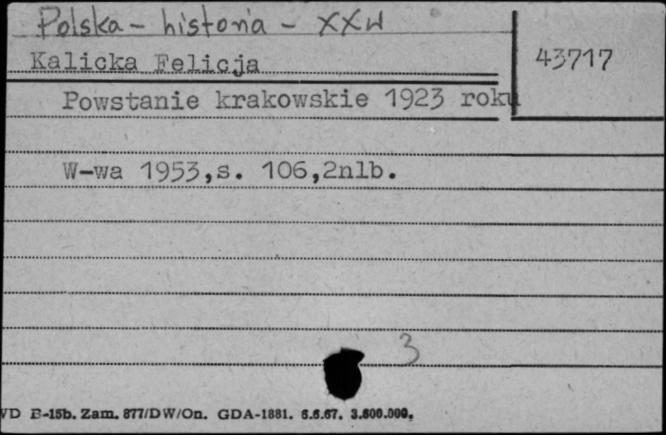 Polska - historia - XX w
43717
Kalicka Felicja
Powstanie krakowskie 1923 roku
W-wa 1953,s. 106,2nlb.
3
VD B-15b. Zam. 877/DW/On. GDA-1881. 6.6.67. 3.600.000.